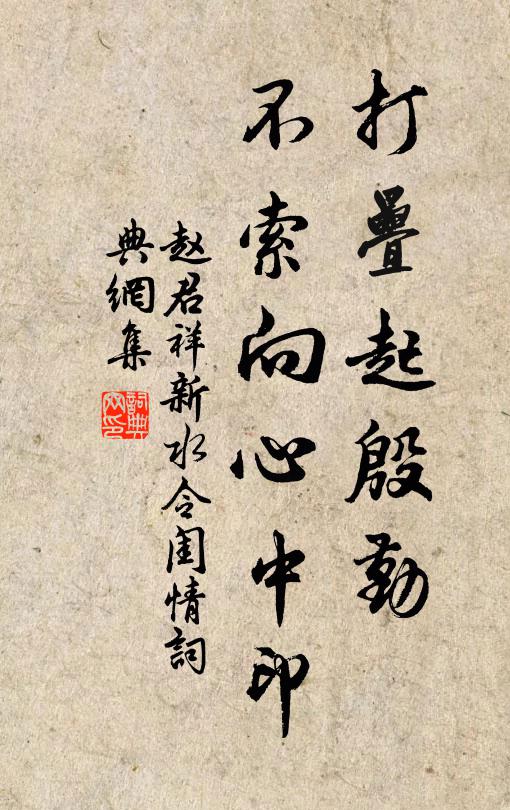 打疊起殷勤
不索向心中印
赵君祥新水令闺情詞
典網集
詞典
网印